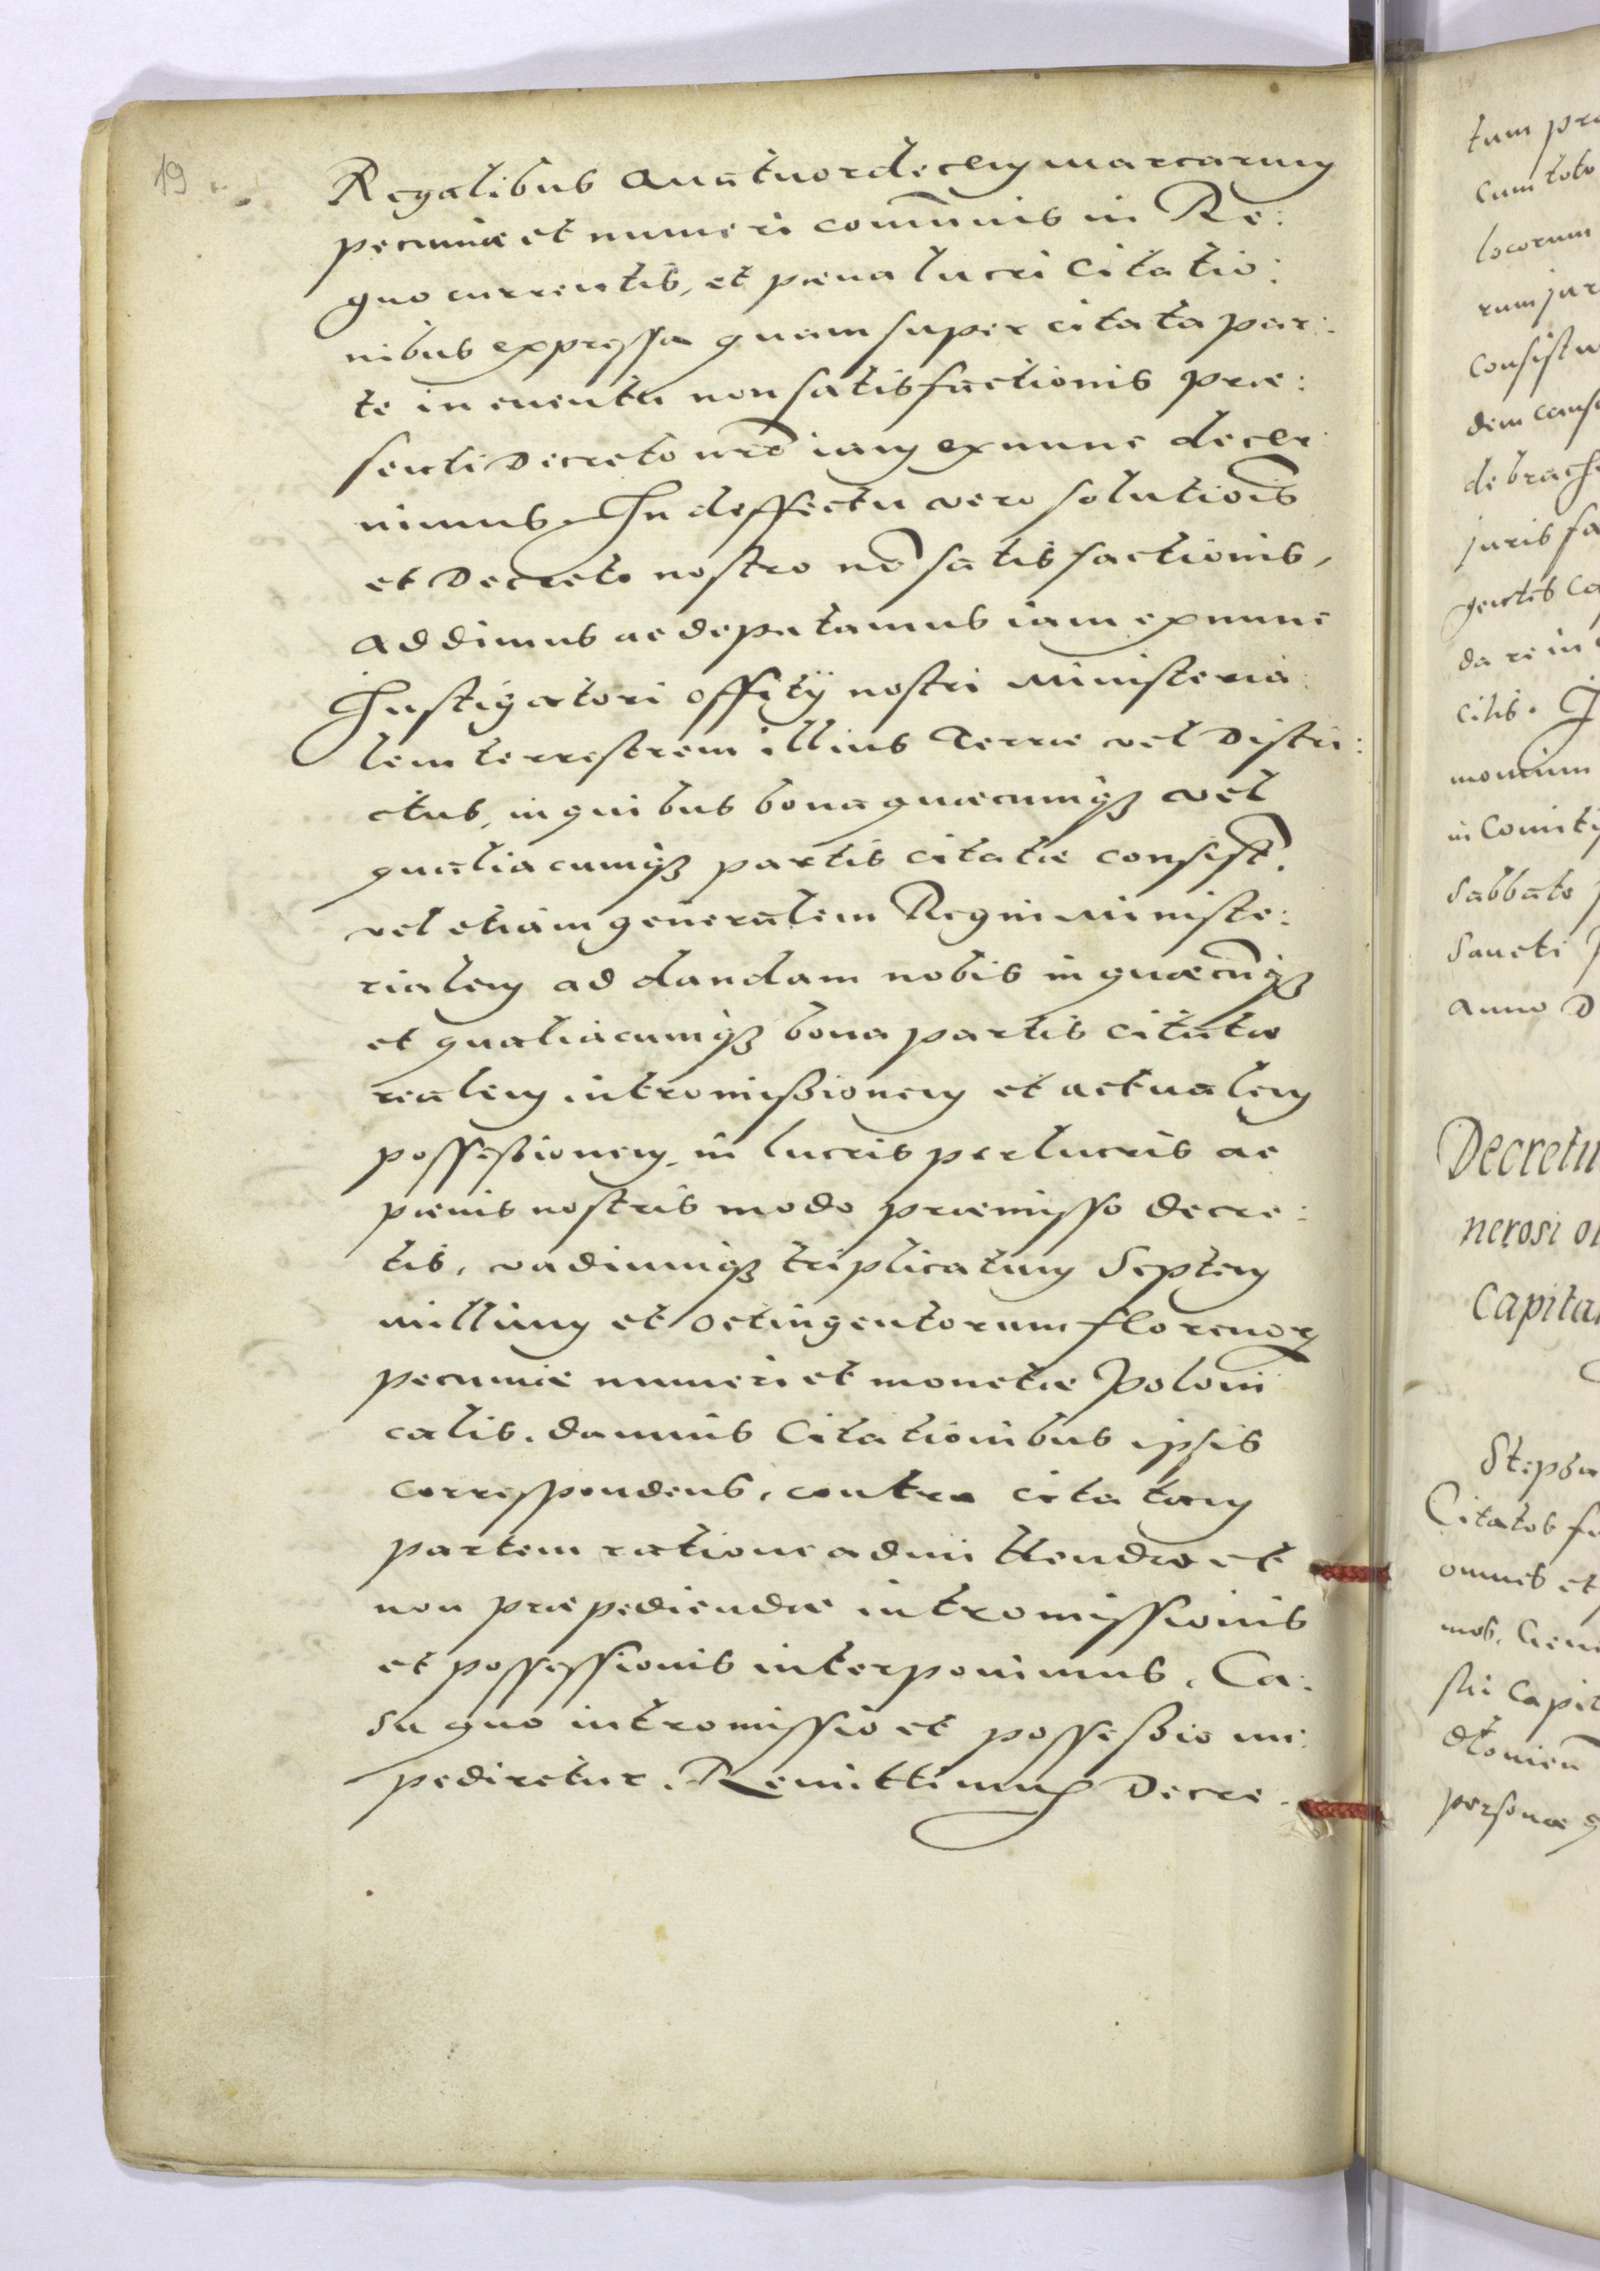 19
Regalibus Quatuordecem marcarum
pecuniæ et numeri com̃unis in Re:
gno currentis, et pæna lucri Citatio:
nibus expressa quam super citata par:
te in euentu non satisfactionis præ:
senti Decreto nr̃o iam ex nunc decer
nimus. In deffectu vero solutiõis
et Decreto nostro nõ satisfactionis,
Addimus ac deputamus iam ex nunc
Instigatori offitÿ nostri Ministeria:
lem terrestrem illius Terræ vel Distri:
ctus, in quibus bona quæcumqȝ vel
qualiacumqȝ partis citatæ consist̃.
vel etiam generalem Regni Ministe:
rialem ad dandam nobis in quæcũqȝ
et qualiacumqȝ bona partis citatæ
realem intromißionem et actualem
posseßionem, in lucris perlucris ac
pænis nostris modo præmisso decre:
tis, vadiumqȝ triplicatum Septem
millium et octingentorum florenorꝝ
pecuniæ numeri et monetæ Poloni
calis. damnis Citationibus ipsis
correspondens, contra citatam
partem ratione admittendæ et
non præpediendæ intromissionis
et possessionis interponimus. Ca:
su quo intromissio et posseßio im:
pediretur. Remittimus Decre.
tum pr
Cum toto
locorum
rum jur
consistu
dem caus
de brach
juris fa
gentes Ca
da re in
cilis. I
in Comity
Sabbato
Sancti
Anno D
Decretu
nerosi ol
Capita
Citatos
omnes et
sti Capit
personæ